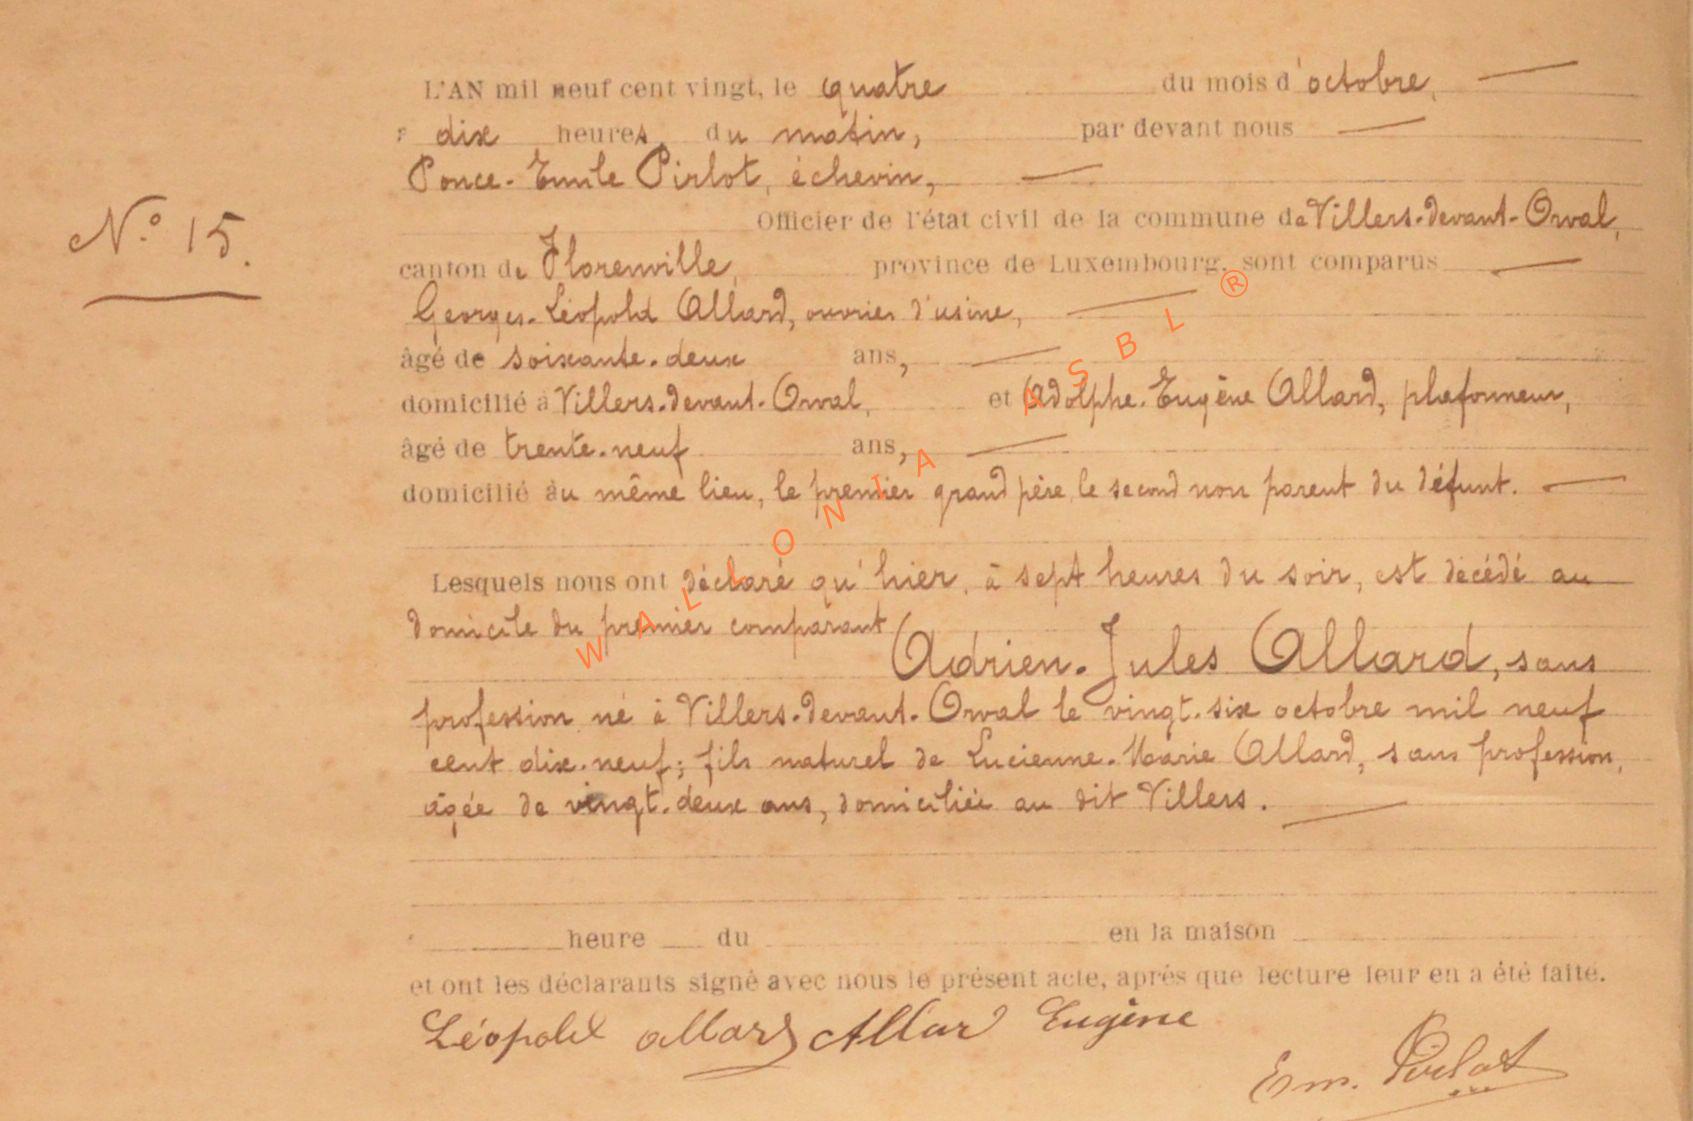 L'AN mil neuf cent vingt, le quatre du mois d'octobre,
à dix heures du matin, par devant nous
Ponce-Emile Pirlot, échevin,
Officier de l'état civil de la commune de Villers-devant-Orval,
N.° 15.
canton de Florenville, province de Luxembourg, sont comparus
Georges-Léopold Allard, ouvrier d'usine,
âgé de soixante-deux ans,
domicilié à Villers-devant-Orval, et Adolphe-Eugène Allard, plafonneur,
âgé de trente-neuf ans,
domicilié au même lieu, le premier grand père, le second non parent du défunt.
Lesquels nous ont déclaré qu'hier, à sept heures du soir, est décédé au
domicile du premier comparant
Adrien-Jules Allard, sans
profession né à Villers-devant-Orval le vingt-six octobre mil neuf
cent dix-neuf; fils naturel de Lucienne-Marie Allard, sans profession,
âgée de vingt-deux ans, domiciliée au dit Villers.
heure du en la maison
et ont les déclarants signé avec nous le présent acte, après que lecture leur en a été faite.
Léopold Allard Allard Eugène
Em. Pirlot
WALLONIA ASBL ®